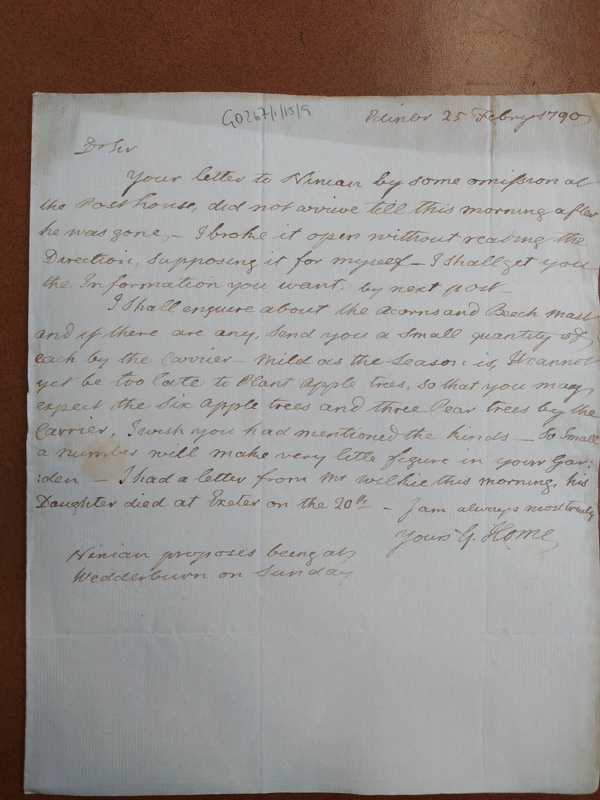 GD267/1/15/9
Edinbr 25 Febry 1790
Dr Sir
Your letter to Ninian by some omission at
the Post house, did not arrive till this morning after
he was gone, – I broke it open without reading the
Direction, supposing it for myself – I shall get you
the Information you want, by next post
I shall enquire about the Acorns and Beech mast
and if there are any, send you a small quantity of
each by the Carrier – Mild as the Season is, it cannot
yet be too late to Plant apple trees, so that you may
expect the six apple trees and three Pear trees by the
Carrier, I wish you had mentioned the kinds – So small
a number will make very little figure in your Gar:
:den – I had a letter from Mr Wilkie this morning, his
Daughter died at Exeter on the 20th – I am always most truly
Yours G. Home
Ninian proposes being at
Wedderburn on Sunday